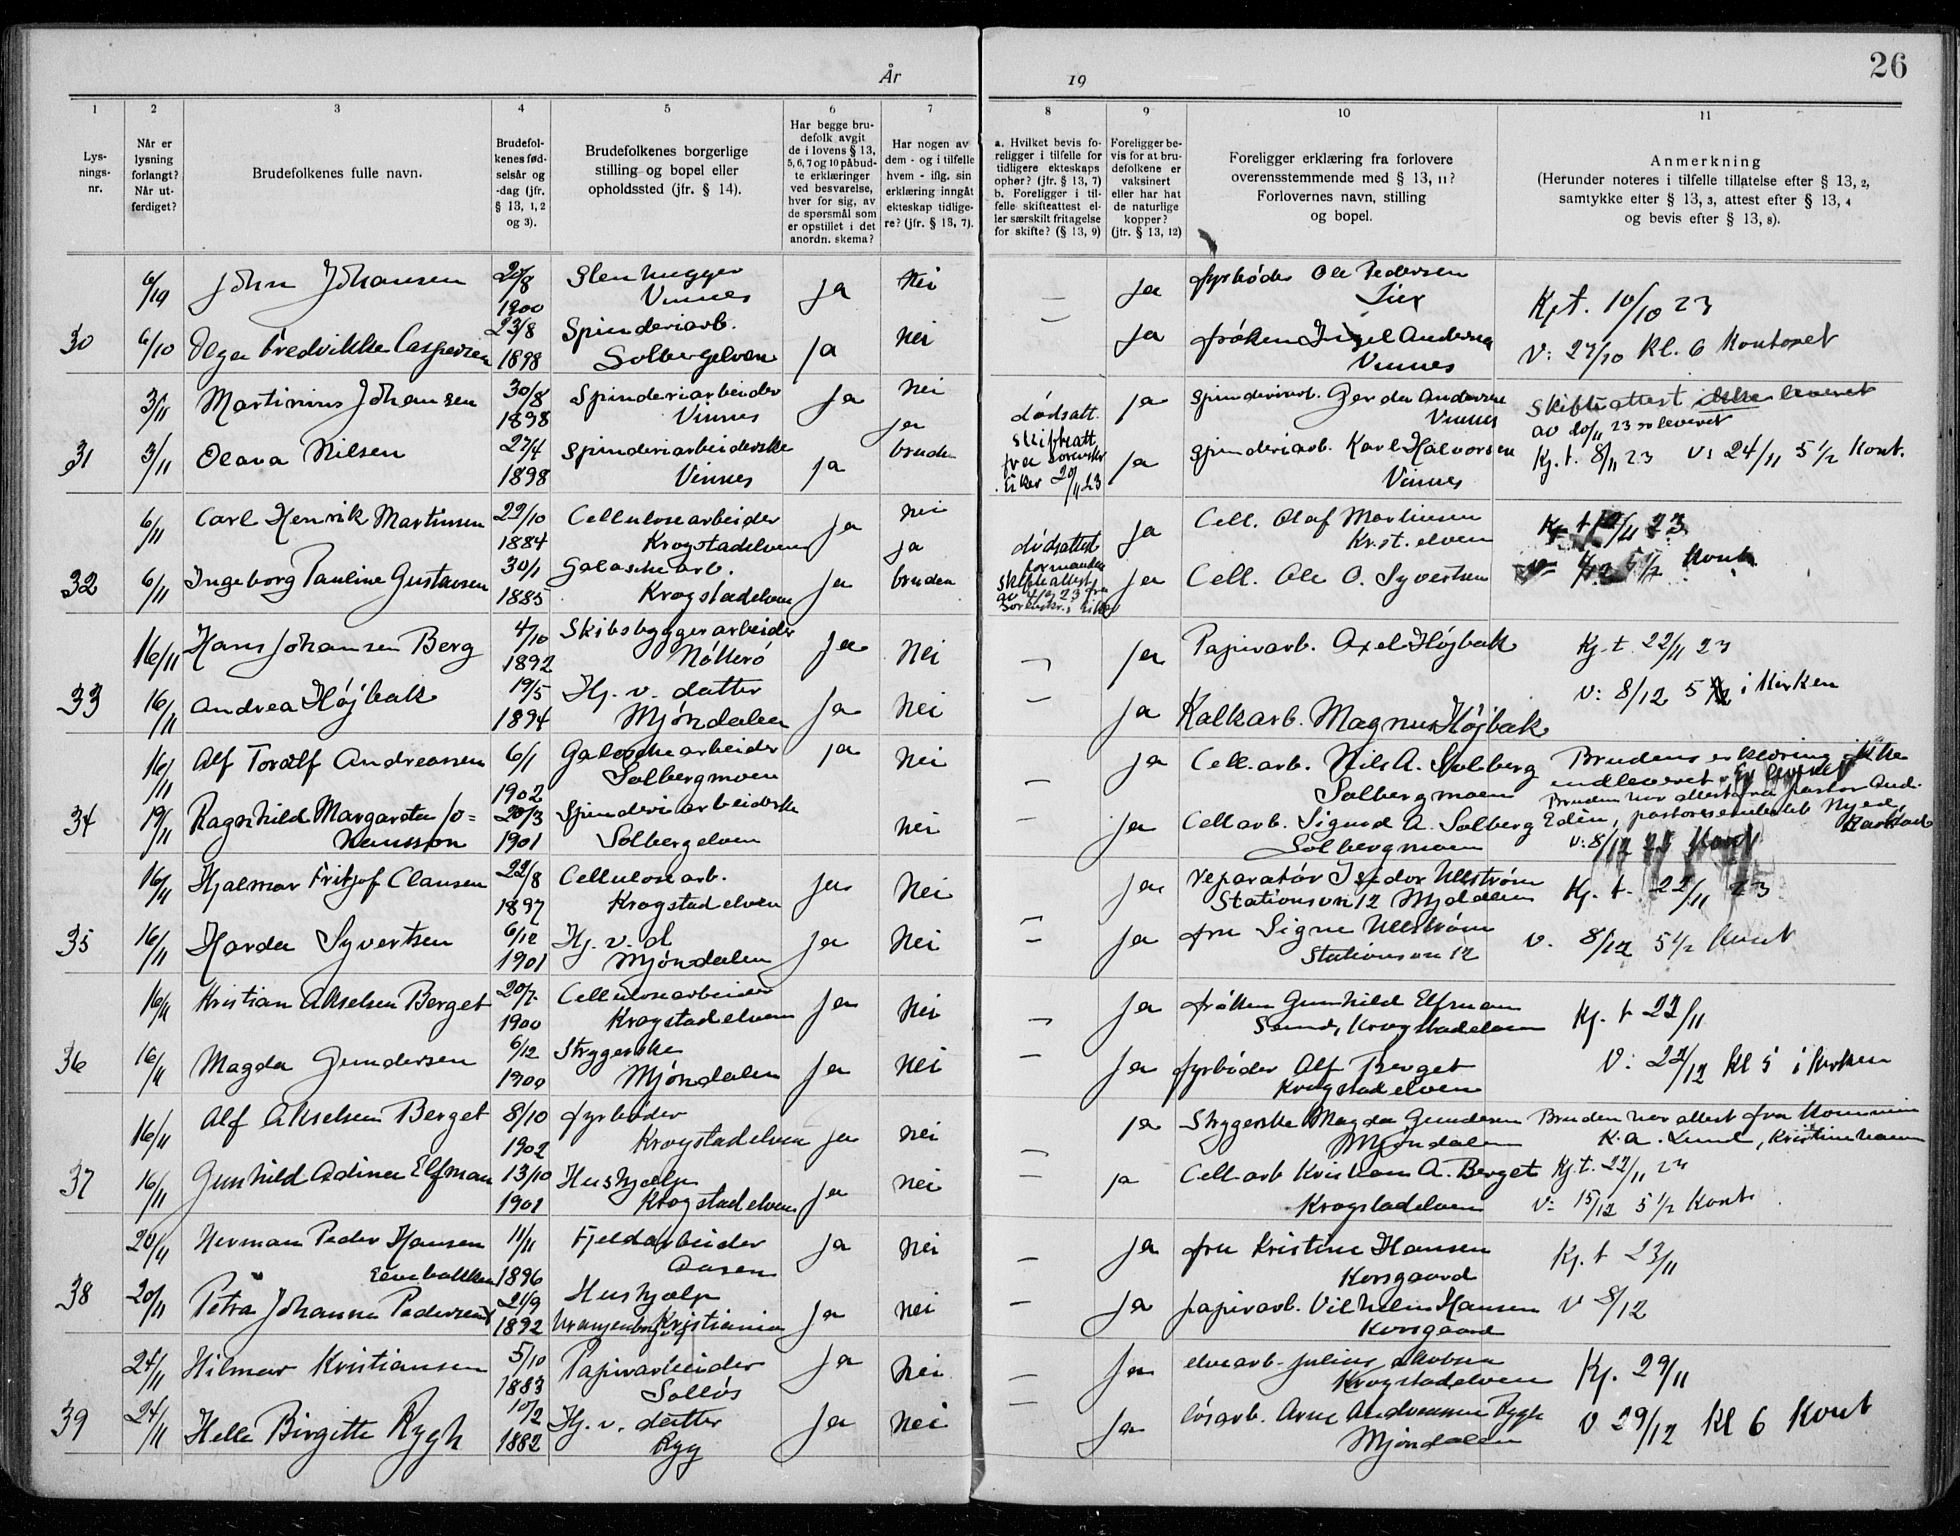 26
År
19
1 2 3 4 5 6 7 8 9 10 11
Lys-
nings-
nr.
Når er
lysning
forlangt?
Når ut-
ferdiget?
Brudefolkenes fulle navn.
Brudefol-
kenes fød-
selsår og
-dag (jfr.
§ 13, 1, 2
og 3).
Brudefolkenes borgerlige
stilling og bopel eller
opholdssted (jfr. § 14).
Har begge bru-
defolk avgit
de i lovens § 13,
5, 6, 7 og 10 påbud-
te erklæringer
ved besvarelse,
hver for sig, av
de spørsmål som
er opstillet i det
anordn. skema?
Har nogen av
dem - og i tilfelle
hvem - iflg. sin
erklæring inngått
ekteskap tidlige-
re? (jfr. § 13, 7).
a. Hvilket bevis fo-
religger i tilfelle for
tidligere ekteskaps
ophør? (jfr. § 13, 7)
b. Foreligger i til-
felle skifteattest el-
ler særskilt fritagelse
for skifte? (§ 13, 9)
Foreligger be-
vis for at bru-
defolkene er
vaksinert
eller har hat
de naturlige
kopper?
(jfr. § 13, 12)
Foreligger erklæring fra forlovere
overensstemmende med § 13, 11?
Forlovernes navn, stilling
og bopel.
Anmerkning
(Herunder noteres i tilfelle tillatelse efter § 13, 2,
samtykke efter § 13, 3, attest efter § 13, 4
og bevis efter § 13, 8).
John Johansen 1900 Stenhugger Vinnes Ja Nei — Ja fyrbøder Ole Pedersen Kj. t. 10/10 23
30 6/10 Fredrikke Caspersen 23/8 1898 Spinderiarb. Solbergelven Ja Nei — Ja frøken Andersen Vinnes V: 27/10 Kl. 6 Kontoret
3/11 Martinius Johansen 30/8 1898 Spinderiarbeider Vinnes Ja Nei Ja spinderiarb. Gerda Andersen Vinnes Skifteattest leveret
av 20/11 23 leveret
31 3/11 Olava Nilsen 27/4 1898 Spinderiarbeiderske Vinnes Ja Ja bruden dødsatt. skifteatt. fra Eiker 20/11 23 Ja spinderiarb. Karl Halvorsen Vinnes Kj. t. 8/11 23 V: 24/11 5 1/2 Kont.
6/11 Carl Henrik Martinsen 29/10 1884 Cellulosearbeider Krogstadelven Ja Nei Ja Cell. Olaf Martinsen Kr.st. elven 23
32 6/11 Ingeborg Pauline Gustavsen 30/1 1885 Galoschearb. Krogstadelven Ja Ja bruden dødsattest skifteattest av 23 fra Ja Cell. Ole O. Syvertsen 5 1/2 Kont
16/11 Hans Johansen Berg 4/10 1892 Skibsbyggerarbeider Nøtterø Ja Nei — Ja Papirarb. Axel Højbak Kj. t. 22/11 23
33 16/11 Andrea Højbak 19/5 1894 Hj. v. datter Mjøndalen Ja Nei — Ja Kalkarb. Magnus Højbak V: 8/12 5 i Kirken
16/11 Alf Toralf Andreassen 6/1 1902 Galoschearbeider Solbergmoen Ja Nei — Ja Cell.arb. Nils A. Solberg Solbergmoen Brudens erklæring ikke
indleveret
34 19/11 Ragnhild Margareta Jo=
hansson 20/3 1901 Spinderiarbeiderske Solbergelven Nei — Ja Cell.arb. Sigurd A. Solberg Solbergmoen Bruden har attest fra pastor
Edin, Nyed, Karlstad
V: 8/12 Kont
16/11 Hjalmar Fritjof Clausen 22/8 1897 Cellulosearb. Krogstadelven Ja Nei — Ja reparatør Isidor Ullstrøm Stationsvn 12 Mjdalen Kj. t. 22/11 23
35 16/11 Harda Syvertsen 6/12 1901 Hj. v. d Mjøndalen Ja Nei — Ja fru Signe Ullstrøm Stationsvn 12 V. 8/12 5 1/2 Kont
16/11 Kristian Akselsen Berget 20/7 1900 Cellulosearbeider Krogstadelven Ja Nei — Ja frøken Gunhild Elfman Sund, Krogstadelven Kj. t 22/11
36 16/11 Magda Gundersen 6/12 1900 Strygerske Mjøndalen Ja Nei — Ja fyrbøder Alf Berget Krogstadelven V: 22/12 Kl 5 i kirken
16/11 Alf Akselsen Berget 8/10 1902 fyrbøder Krogstadelven Ja Nei — Ja Strygerske Magda Gundersen Mjøndalen Bruden har attest fra
K. A. Lund, Kristinehamn
37 16/11 Gunhild Adina Elfman 13/10 1901 Hushjælp Krogstadelven Ja Nei — Ja Cell arb Kristian A. Berget Krogstadelven Kj. t. 22/11 23
V: 15/12 5 1/2 Kont
20/11 Herman Peder Hansen 11/11 1896 Fjeldarbeider Aasen Ja Nei — Ja fru Kristine Hansen Korsgaard Kj. t 23/11
38 20/11 Petra Johanne Pedersen 21/9 1892 Hushjælp Uranienborg Kristiania Ja Nei — Ja papirarb. Vilhelm Hansen Korsgaard V 8/12
24/11 Hilmar Kristiansen 5/10 1883 Papirarbeider Ja Nei — Ja elvearb. Julius Jakobsen Krogstadelven Kj. 29/11
39 24/11 Helle Birgitte Rygh 10/2 1882 Hj. v. datter Ryg Ja Nei — Ja løsarb. Arne Rygh Mjøndalen V 29/12 Kl 6 Kont